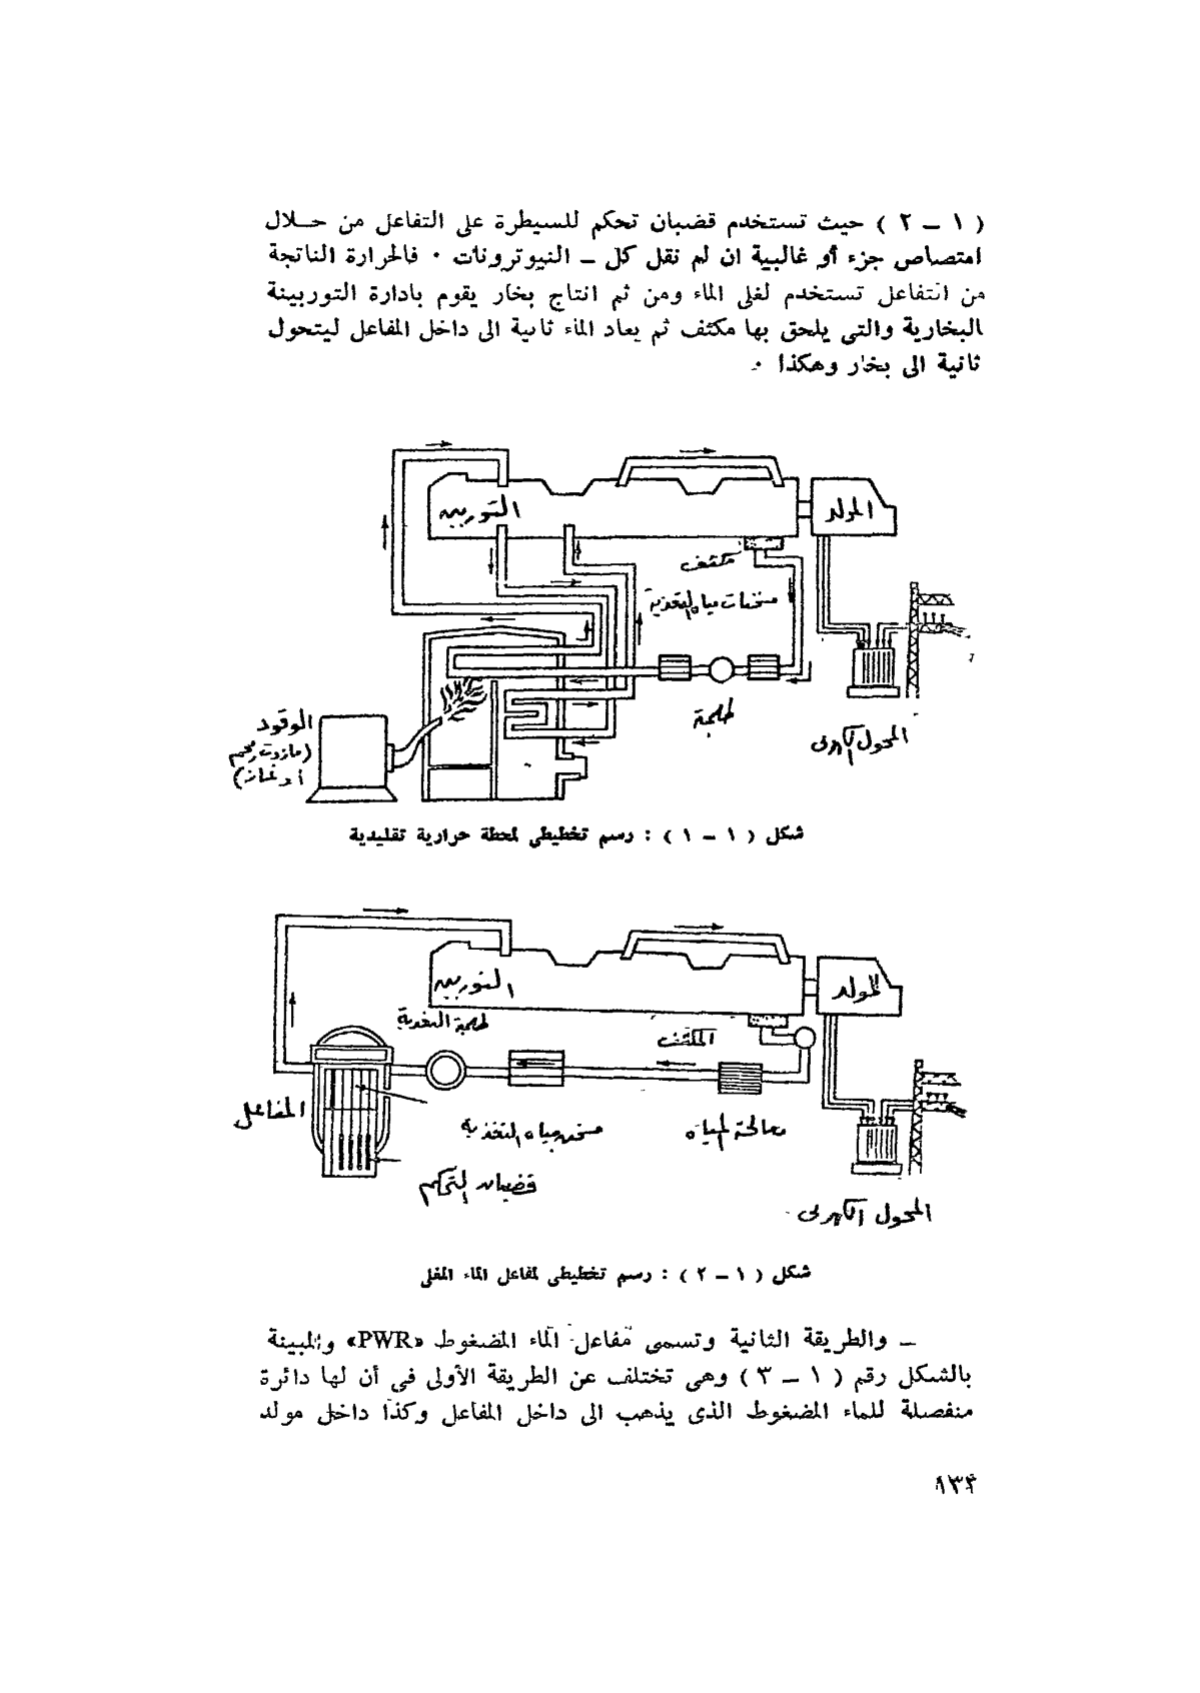 ( ١ – ٢ ) حيث تستخدم قضبان تحكم للسيطرة على التفاعل من خــلال
امتصاص جزء أو غالبية ان لم نقل كل – النيوترونات ٠ فالحرارة الناتجة
من التفاعل تستخدم لغلى الماء ومن ثم انتاج بخار يقوم بادارة التوربينة
البخارية والتى يلحق بها مكثف ثم يعاد الماء ثانية الى داخل المفاعل ليتحول
ثانية الى بخار وهكذا ٠
المولد
التوربينه
مكثف
مسخنات مياه التغذية
طلمبة
المحول الكهربى
الوقود
(مازوت، فحم
أو غاز)
شكل ( ١ – ١ ) : رسم تخطيطى لمحطة حرارية تقليدية
المولد
التوربينه
طلمبة التغذية
المكثف
المفاعل
مسخن مياه التغذية
معالجة المياه
قضبان التحكم
المحول الكهربى
شكل ( ١ – ٢ ) : رسم تخطيطى لمفاعل الماء المغلى
– والطريقة الثانية وتسمى مفاعل الماء المضغوط «PWR» والمبينة
بالشكل رقم ( ١ – ٣ ) وهى تختلف عن الطريقة الأولى فى أن لها دائرة
منفصلة للماء المضغوط الذى يذهب الى داخل المفاعل وكذا داخل مولد